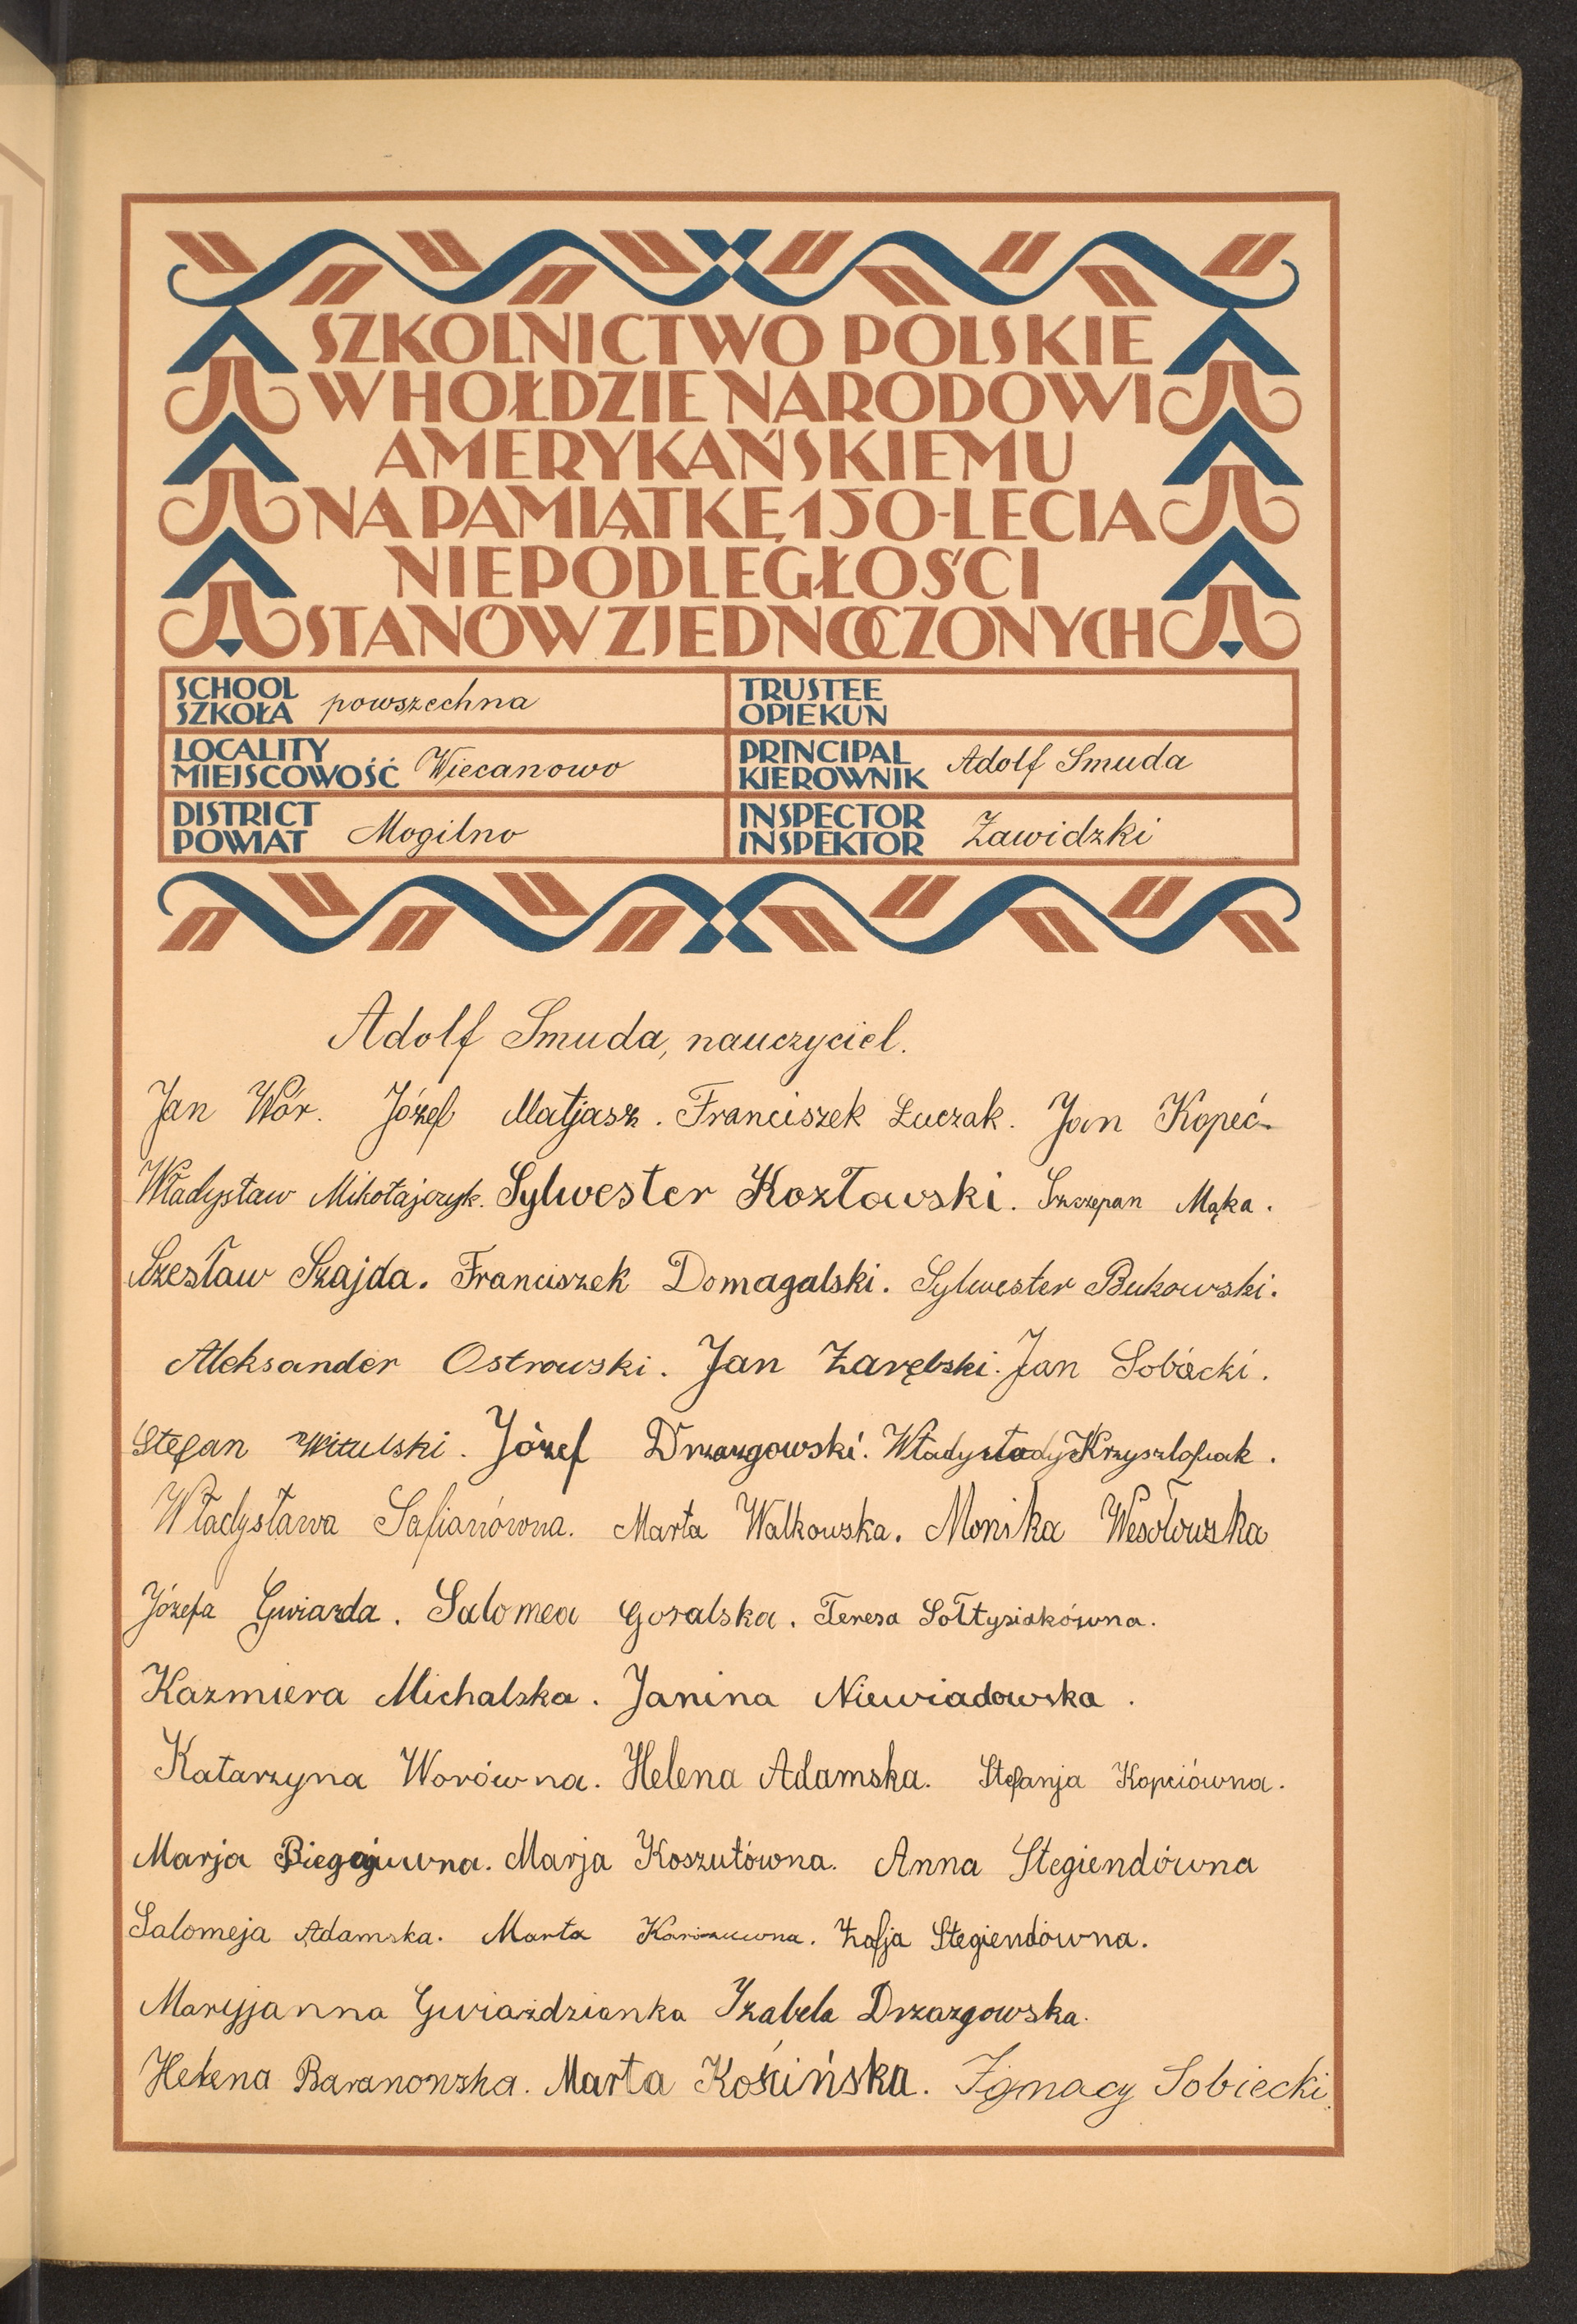 SZKOLNICTWO POLSKIE
W HOŁDZIE NARODOWI
AMERYKAŃSKIEMU
NA PAMIĄTKĘ 150-LECIA
NIEPODLEGŁOŚCI
STANÓW ZJEDNOCZONYCH
SCHOOL
SZKOŁA powszechna
TRUSTEE
OPIEKUN
LOCALITY
MIEJSCOWOŚĆ Wiecanowo
PRINCIPAL
KIEROWNIK Adolf Smuda
DISTRICT
POWIAT Mogilno
INSPECTOR
INSPEKTOR Zawidzki
Adolf Smuda, nauczyciel.
Jan Wór. Józef Matjasz. Franciszek Łuczak. Jan Kopeć.
Władysław Mikołajczyk. Sylwester Kozławski. Szczepan Mąka.
Czesław Szajda. Franciszek Domagalski. Sylwester Bukowski.
Aleksander Ostrowski. Jan Zarębski. Jan Sobiecki.
Stefan Witulski. Józef Drzazgowski. Krzysztofiak.
Władysława Safianówna. Marta Walkowska. Monika Wesołowska
Józefa Gwiazda. Salomea Goralska. Teresa Sołtysiakówna.
Kazmiera Michalska. Janina Niewiadowska.
Katarzyna Worówna. Helena Adamska. Stefanja Kopciówna.
Marja Biegajuwna. Marja Koszutówna. Anna Stegiendówna
Salomeja Adamska. Marta Zofja Stegiendówna.
Maryjanna Gwiaździanka Izabela Drzazgowska.
Helena Baranowska. Marta Kosińska. Ignacy Sobiecki.